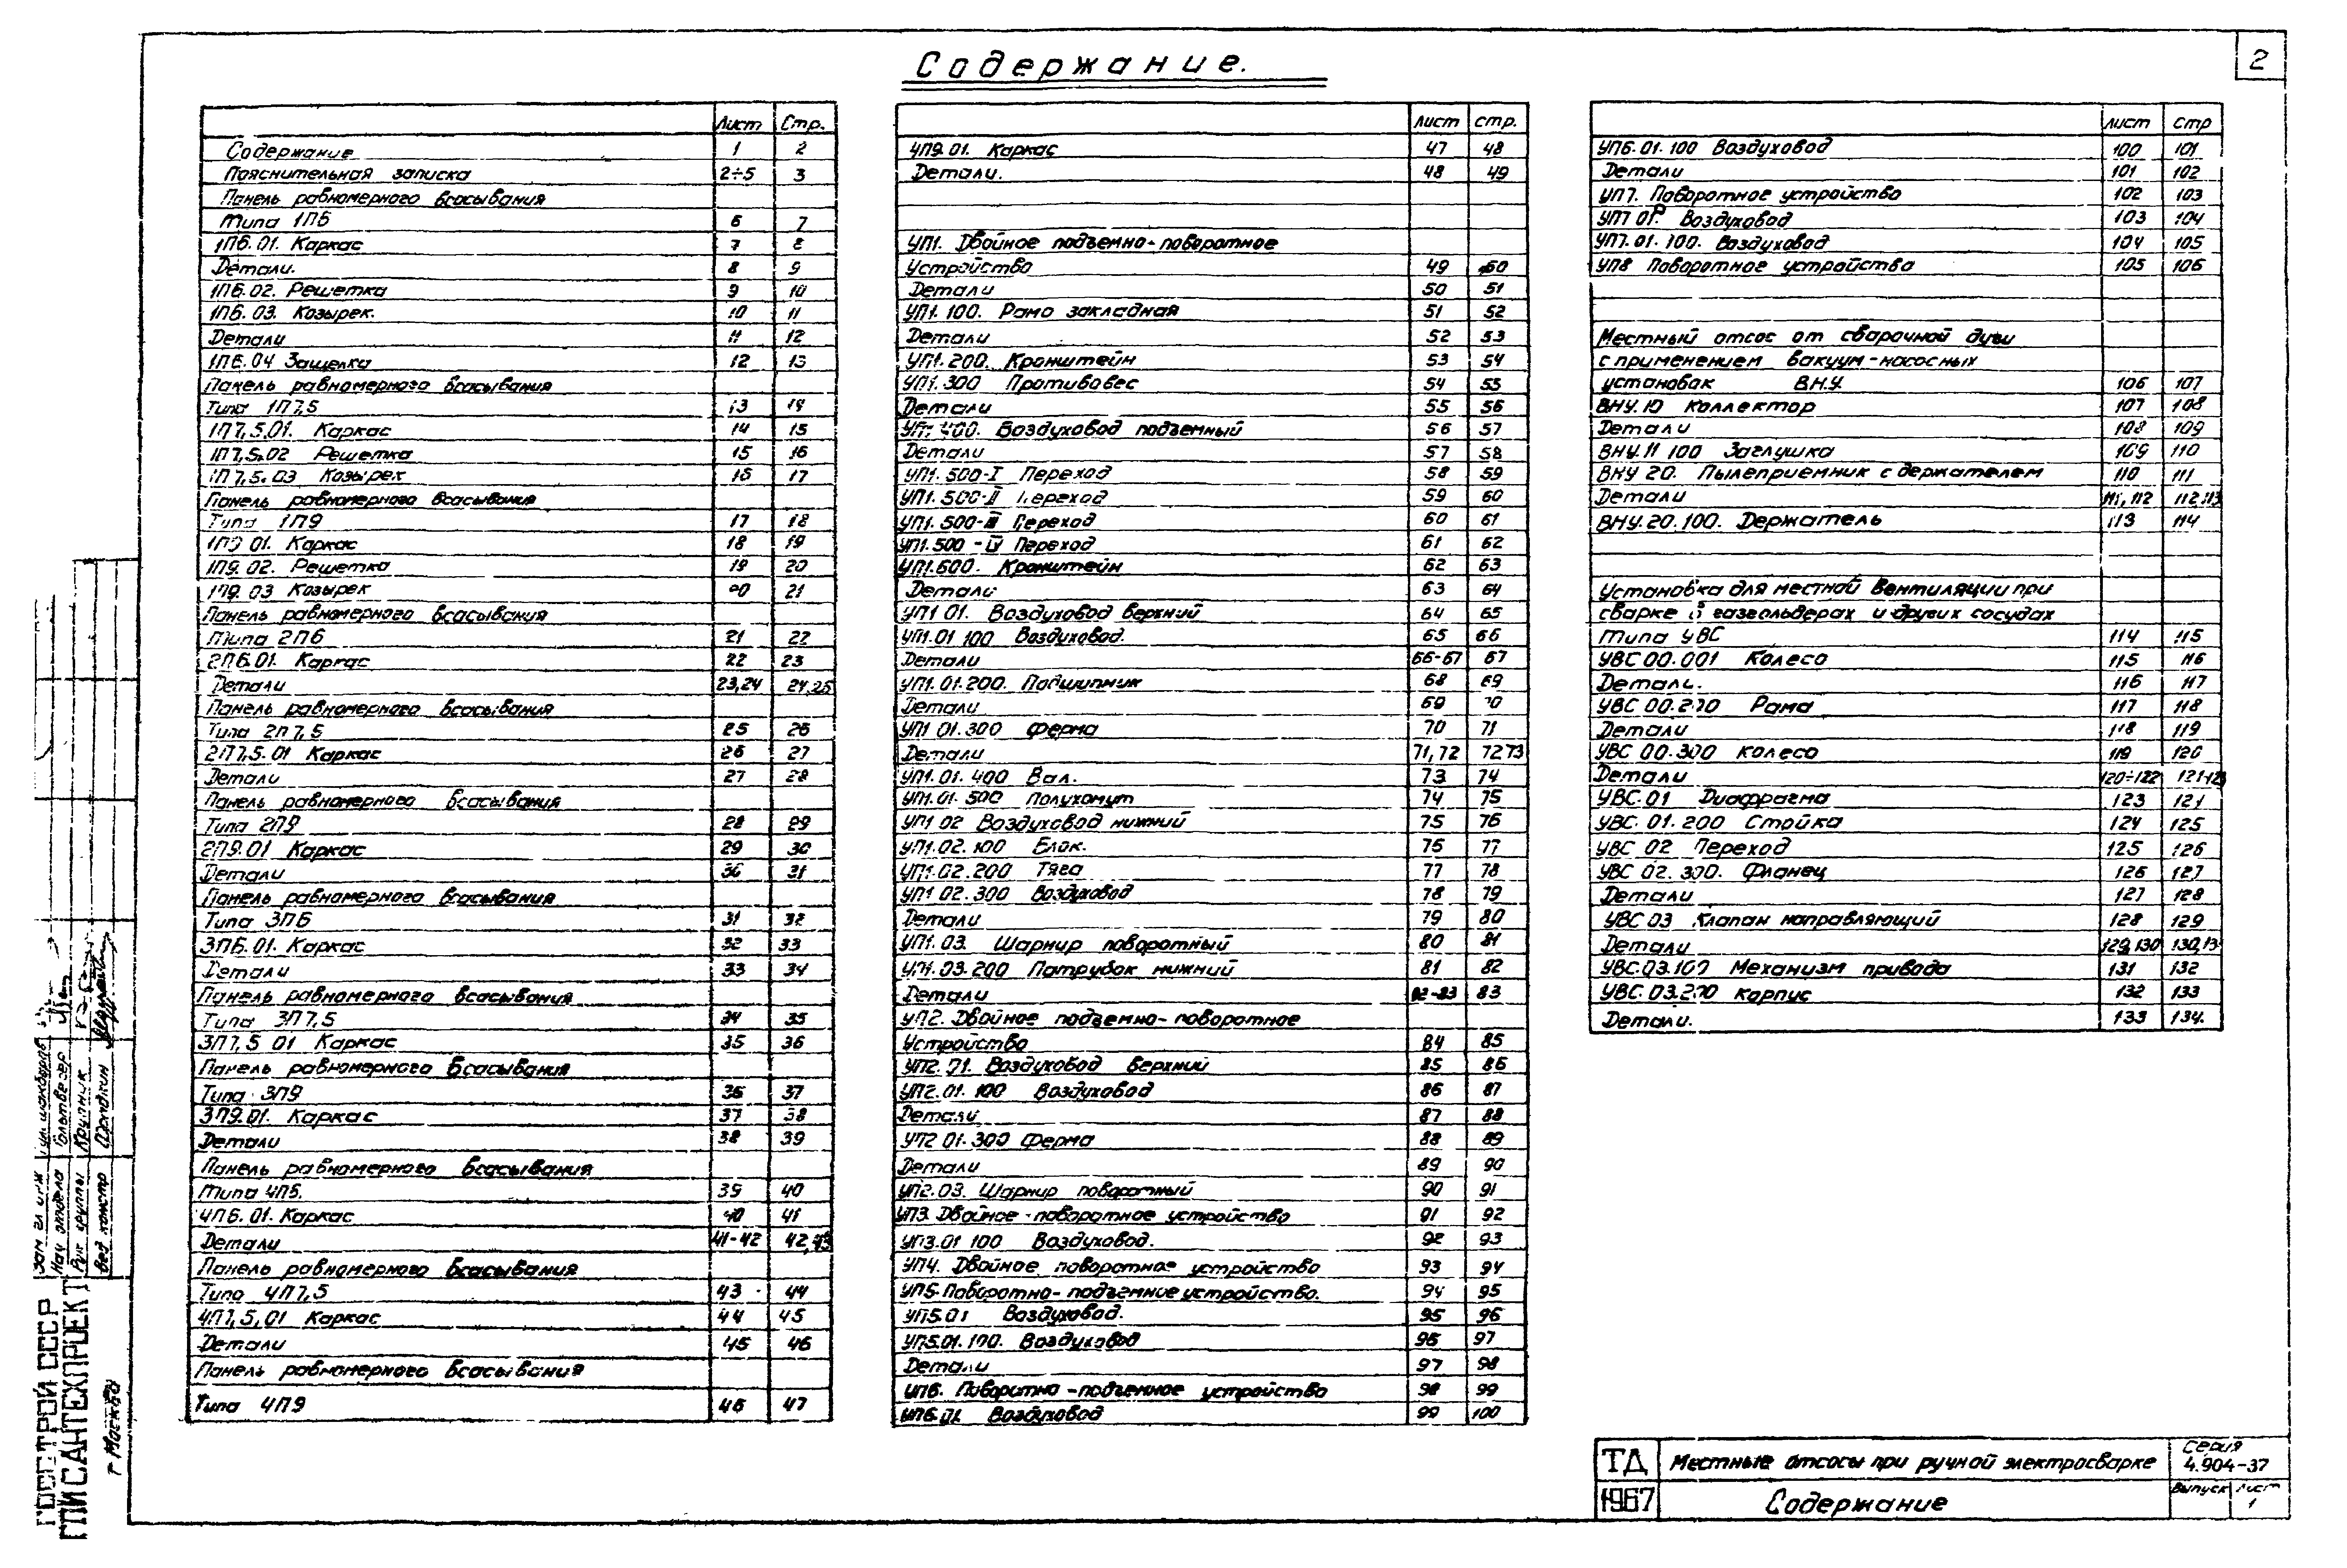 2
Содержание.
Лист Стр.
Содержание 1 2
Пояснительная записка 2÷5 3
Панель равномерного всасывания
Типа 1П6 6 7
1П6.01. Каркас 7 8
Детали. 8 9
1П6.02. Решетка 9 10
1П6.03. Козырек. 10 11
Детали 11 12
1П6.04 Защелка 12 13
Панель равномерного всасывания
Типа 1П7,5 13 14
1П7,5.01. Каркас 14 15
1П7,5.02 Решетка 15 16
1П7,5.03 Козырек 16 17
Панель равномерного всасывания
Типа 1П9 17 18
1П9 01. Каркас 18 19
1П9.02. Решетка 19 20
1П9.03 Козырек 21
Панель равномерного всасывания
Типа 2П6 21 22
2П6.01. Каркас 22 23
Детали 23,24 24,25
Панель равномерного всасывания
Типа 2П7,5 25 26
2П7,5.01 Каркас 26 27
Детали 27 28
Панель равномерного всасывания
Типа 2П9 28 29
2П9.01 Каркас 29 30
Детали 30 31
Панель равномерного всасывания
Типа 3П6 31 32
3П6.01. Каркас 32 33
Детали 33 34
Панель равномерного всасывания
Типа 3П7,5 34 35
3П7,5 01 Каркас 35 36
Панель равномерного всасывания
Типа 3П9 36 37
3П9.01. Каркас 37 38
Детали 38 39
Панель равномерного всасывания
Типа 4П6. 39 40
4П6.01. Каркас 40 41
Детали 41-42 42,43
Панель равномерного всасывания
Типа 4П7,5 43 44
4П7,5,01 Каркас 44 45
Детали 45 46
Панель равномерного всасывания
Типа 4П9 46 47
Лист стр.
4П9.01. Каркас 47 48
Детали. 48 49
УП1. Двойное подъемно-поворотное
Устройство 49 50
Детали 50 51
УП1.100. Рама закладная 51 52
Детали 52 53
УП1.200. Кронштейн 53 54
УП1.300 Противовес 54 55
Детали 55 56
УП1.400. Воздуховод подъемный 56 57
Детали 57 58
УП1.500-I Переход 58 59
УП1.500-II Переход 59 60
УП1.500-III Переход 60 61
УП1.500-IV Переход 61 62
УП1.600. Кронштейн 62 63
Детали 63 64
УП1 01. Воздуховод верхний 64 65
УП1.01 100 Воздуховод. 65 66
Детали 66-67 67
УП1.01.200. Подшипник 68 69
Детали 69 70
УП1 01.300 Ферма 70 71
Детали 71,72 72 73
УП1.01.400 Вал. 73 74
УП1.01.500 Полухомут 74 75
УП1 02 Воздуховод нижний 75 76
УП1.02.100 Блок. 76 77
УП1.02.200 Тяга 77 78
УП1 02.300 Воздуховод 78 79
Детали 79 80
УП1.03. Шарнир поворотный 80 81
УП1.03.200 Патрубок нижний 81 82
Детали 82-83 83
УП2. Двойное подъемно-поворотное
Устройство 84 85
УП2.01. Воздуховод верхний 85 86
УП2.01.100 Воздуховод 86 87
Детали 87 88
УП2 01.300 Ферма 88 89
Детали 89 90
УП2.03. Шарнир поворотный 90 91
УП3. Двойное-поворотное устройство 91 92
УП3.01 100 Воздуховод. 92 93
УП4. Двойное поворотное устройство 93 94
УП5-Поворотно-подъемное устройство. 94 95
УП5.01 Воздуховод. 95 96
УП5.01.100. Воздуховод 96 97
Детали 97 98
УП6. Поворотно-подъемное устройство 98 99
УП6.01. Воздуховод 99 100
лист стр
УП6.01.100 Воздуховод 100 101
Детали 101 102
УП7. Поворотное устройство 102 103
УП7 01. Воздуховод 103 104
УП7.01.100. Воздуховод 104 105
УП8 Поворотное устройство 105 106
Местный отсос от сварочной дуги
с применением вакуум-насосных
установок ВНУ 106 107
ВНУ.10 Коллектор 107 108
Детали 108 109
ВНУ.11 100 Заглушка 109 110
ВНУ 20. Пылеприемник с держателем 110 111
Детали 111,112 112,113
ВНУ.20.100. Держатель 113 114
Установка для местной вентиляции при
сварке в газгольдерах и других сосудах
типа УВС 114 115
УВС 00.001 Колесо 115 116
Детали. 116 117
УВС 00.200 Рама 117 118
Детали 118 119
УВС 00.300 Колесо 119 120
Детали 120÷122 121-123
УВС.01 Диафрагма 123 121
УВС.01.200 Стойка 124 125
УВС 02 Переход 125 126
УВС 02.300. Фланец 126 127
Детали 127 128
УВС 03 Клапан направляющий 128 129
Детали 129,130 130,13
УВС.03.100 Механизм привода 131 132
УВС.03.200 Корпус 132 133
Детали. 133 134.
ТД Местные отсосы при ручной электросварке Серия 4.904-37
1967 Содержание Выпуск Лист 1
Зам гл инж
Нач отдела Гольтвегер
Рук группы Крупник
Вед констр
ГОССТРОЙ СССР
ГПИ САНТЕХПРОЕКТ
г Москва